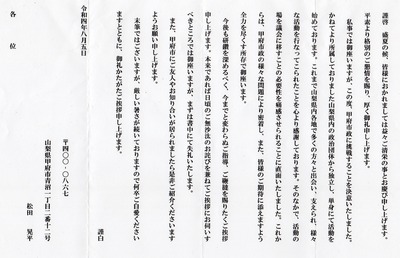 謹啓　盛夏の候、皆様におかれましては益々ご清栄の事とお慶び申し上げます。
平素より格別のご懇情を賜り、厚く御礼申し上げます。
私事では御座いますが、この度、甲府市政に挑戦することを決意いたしました。
かねてより所属しておりました山梨県内の政治団体から独立し、単身にて活動を
始めております。これまで山梨県内各地で多くの方々と出会い、支えられ、様々
な活動を行なってこられたことを心より感謝しております。そのなかで、活動の
場を議会に移すことの必要性を痛感させられることに直面いたしました。これか
らは、甲府市政の様々な問題により密着し、また、皆様のご期待に添えますよう
全力を尽くす所存で御座います。
今後も研鑽を深めるべく、今までと変わらぬご指導、ご鞭撻を賜りたくご挨拶
申し上げます。本来であれば日頃のご無沙汰のお詫びを兼ねてご挨拶にお伺いす
べきところでは御座いますが、まずは書中にて失礼いたします。
また、甲府市にご友人やお知り合いが居られましたら是非ご紹介くださいます
ようお願い申し上げます。
末筆ではございますが、厳しい暑さが続いておりますので何卒ご自愛ください
ますとともに、御礼かたがたご挨拶申し上げます。
謹白
〒四〇〇-〇八六七
山梨県甲府市青沼一丁目二番十二号
松田　晃平
令和四年八月五日
各　位